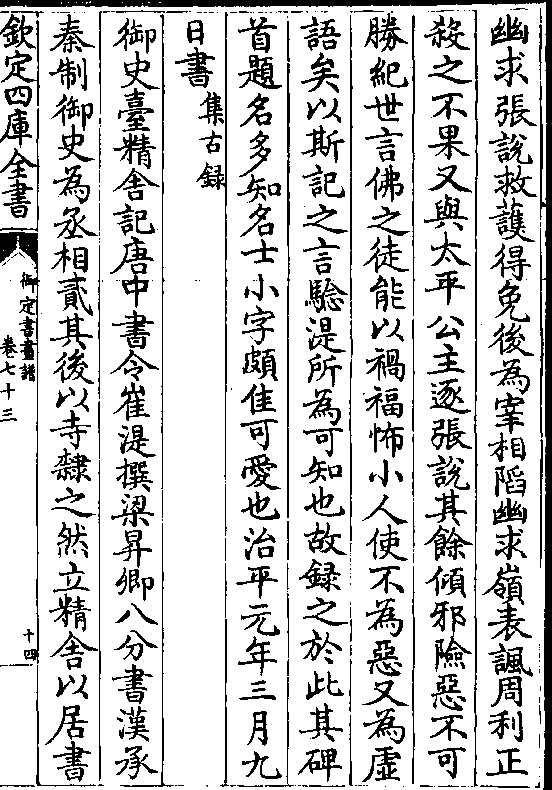 幽求張說救護得免後為宰相陷幽求嶺表諷周利正
殺之不果又與太平公主逐張說其餘傾邪險惡不可
勝紀世言佛之徒能以禍福怖小人使不為惡又為虛
語矣以斯記之言驗湜所為可知也故録之於此其碑
首題名多知名士小字頗佳可愛也治平元年三月九
日書 集古録
御史臺精舎記唐中書令崔湜撰梁昇卿八分書漢承
秦制御史為丞相貳其後以寺隸之然立精舎以居書
欽定四庫全書
御定書畫譜
卷七十三
十四